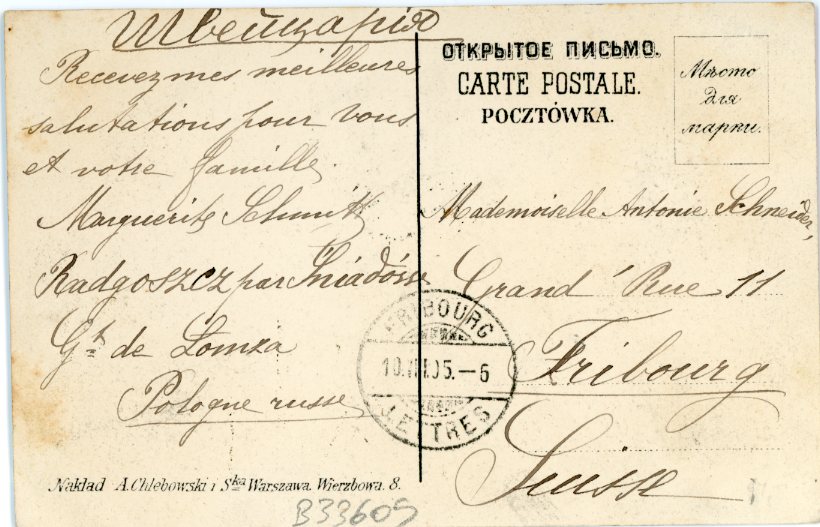 Швейцарія
Recevez mes meilleures
salutations pour Vous
et votre famille.
Marguerite Schmitt
Radgoszcz par Śniadów
Gt de Łomża
Pologne russe
Nakład A. Chlebowski i Ska Warszawa. Wierzbowa. 8.
B33605
ОТКРЫТОЕ ПИСЬМО.
CARTE POSTALE.
POCZTÓWKA.
Мѣсто
для
марки.
Mademoiselle Antonie Schneider,
Grand' Rue 11
Fribourg
Suisse
FRIBOURG
10.III.05.—6
LETTRES